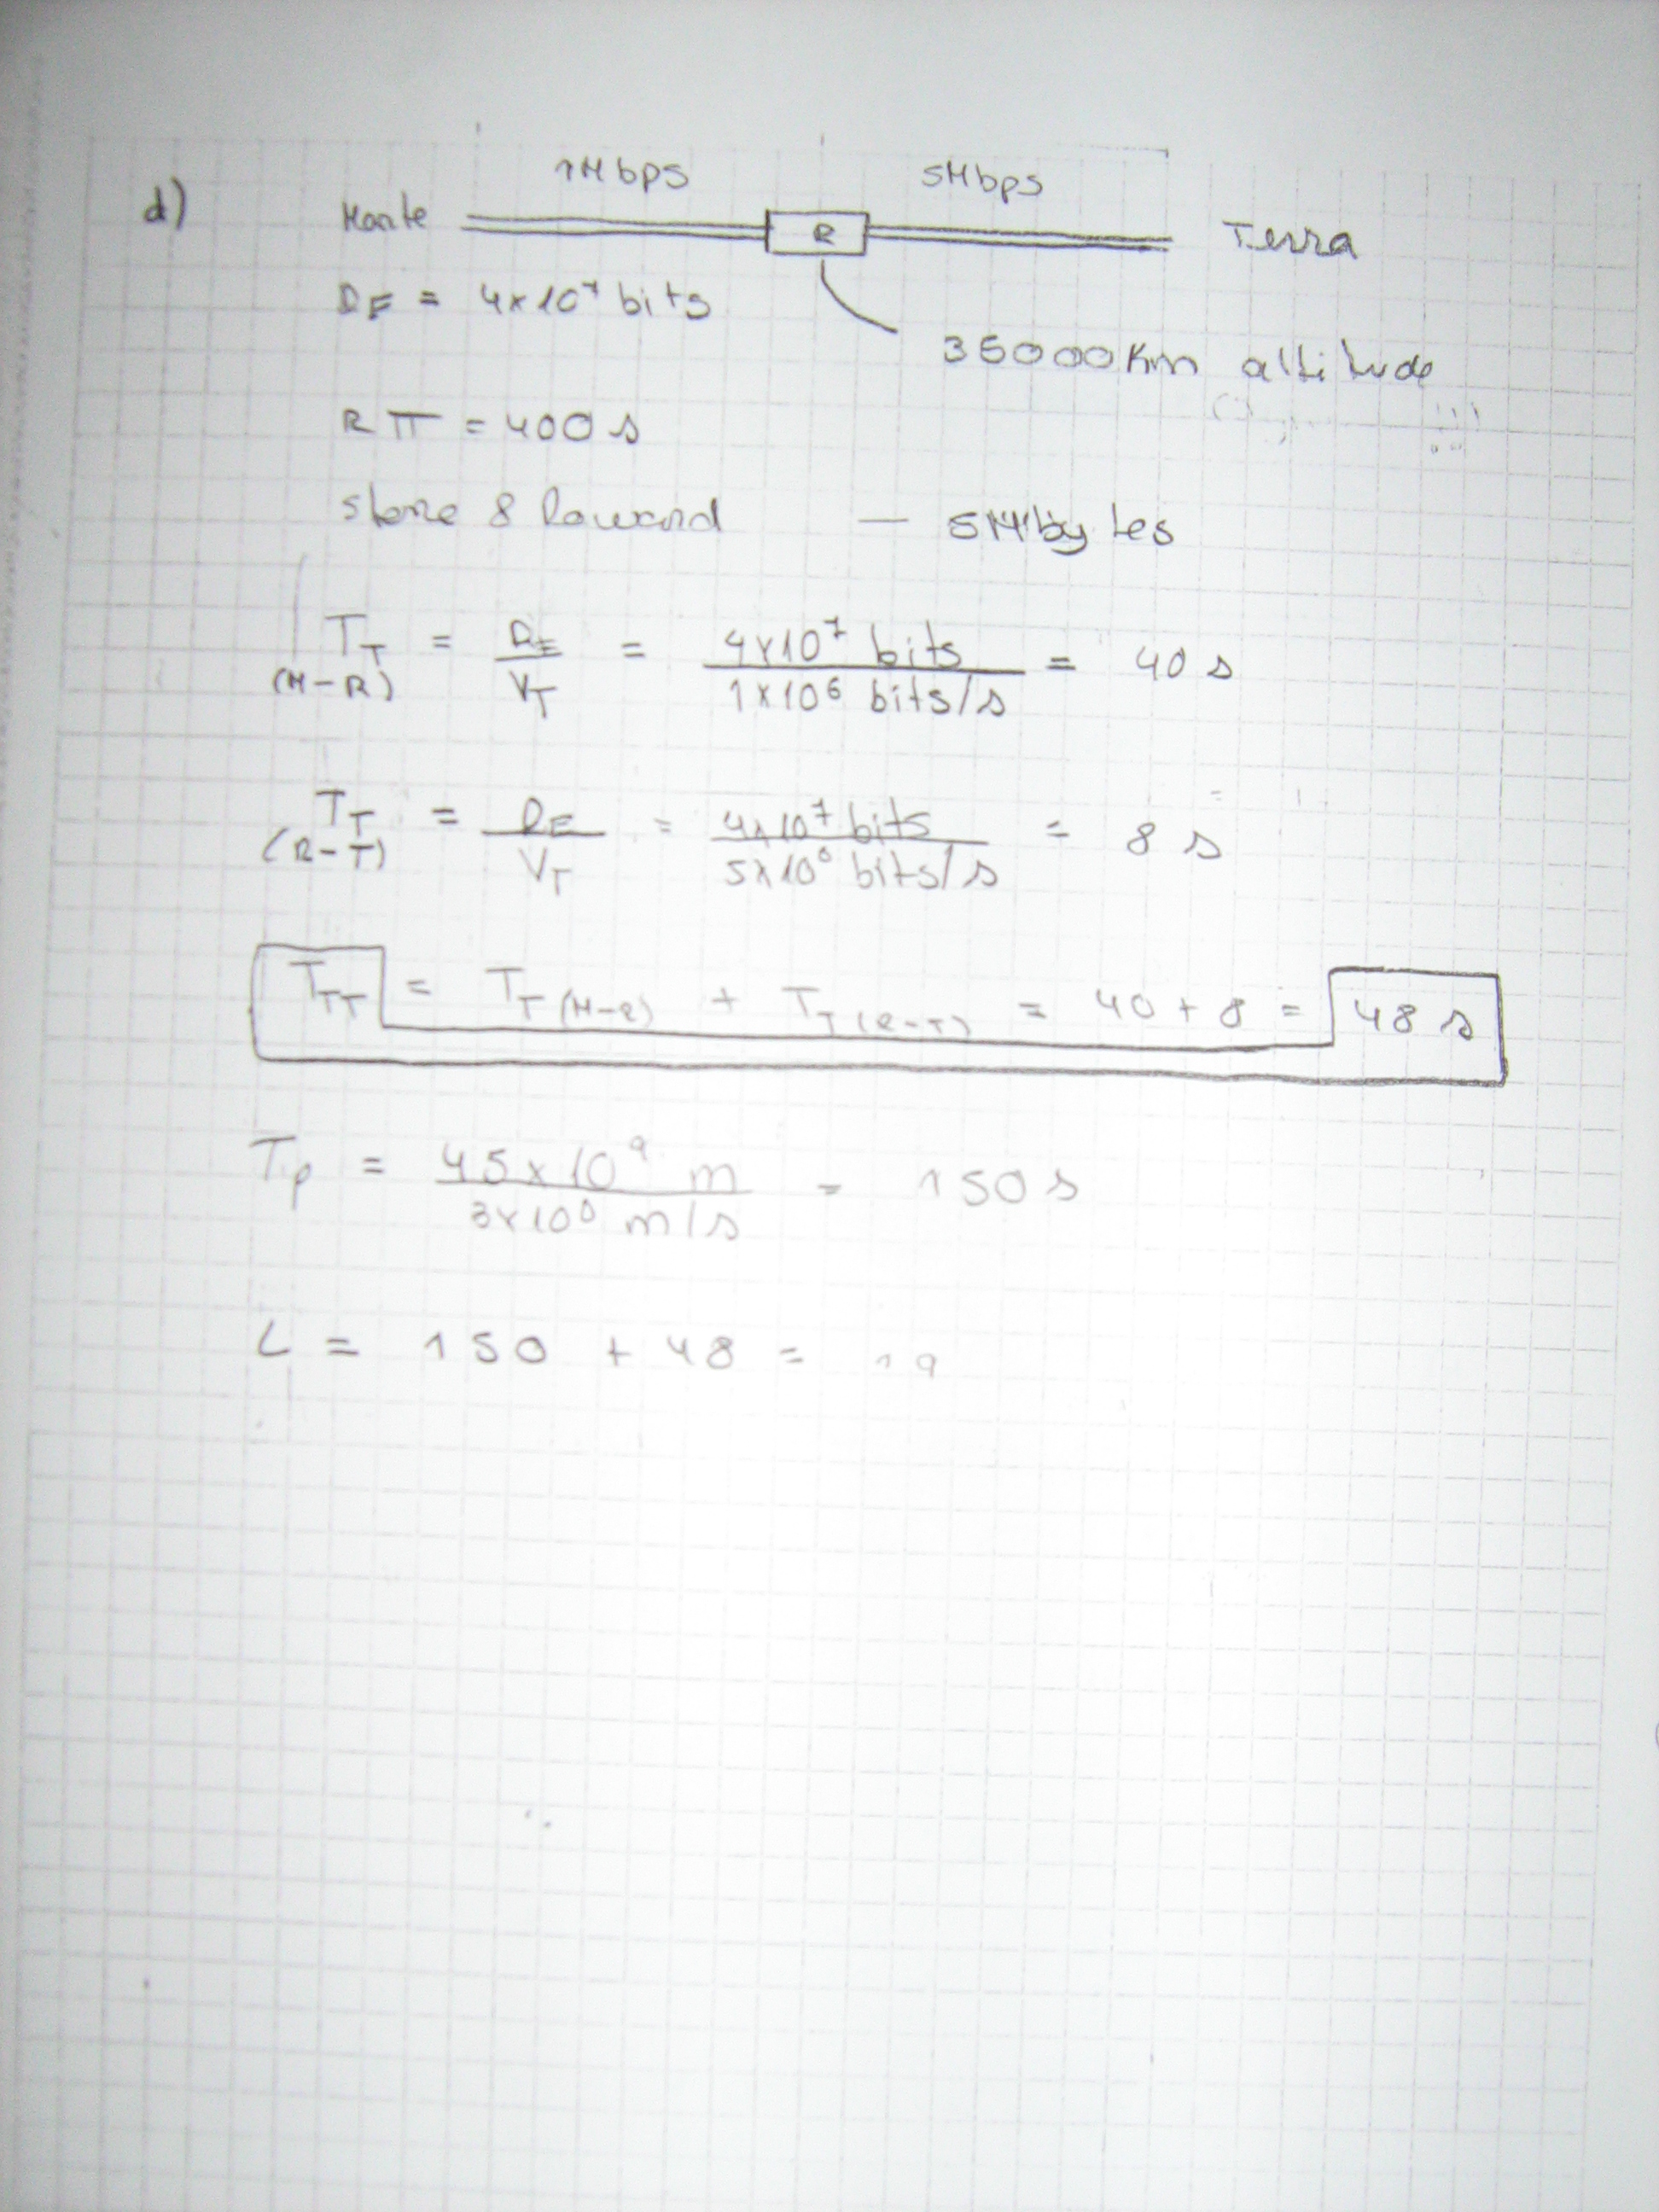 d)
1Mbps 5Mbps
Marte R Terra
DF = 4x10⁷ bits
35000 Km altitude
RTT = 400 s
store & foward — 5 Mbytes
T_T (M-R) = DF / V_T = 4x10⁷ bits / 1x10⁶ bits/s = 40 s
T_T (R-T) = DF / V_T = 4x10⁷ bits / 5x10⁶ bits/s = 8 s
T_TT = T_T (M-R) + T_T (R-T) = 40 + 8 = 48 s
Tp = 45x10⁹ m / 3x10⁸ m/s = 150 s
L = 150 + 48 = 19